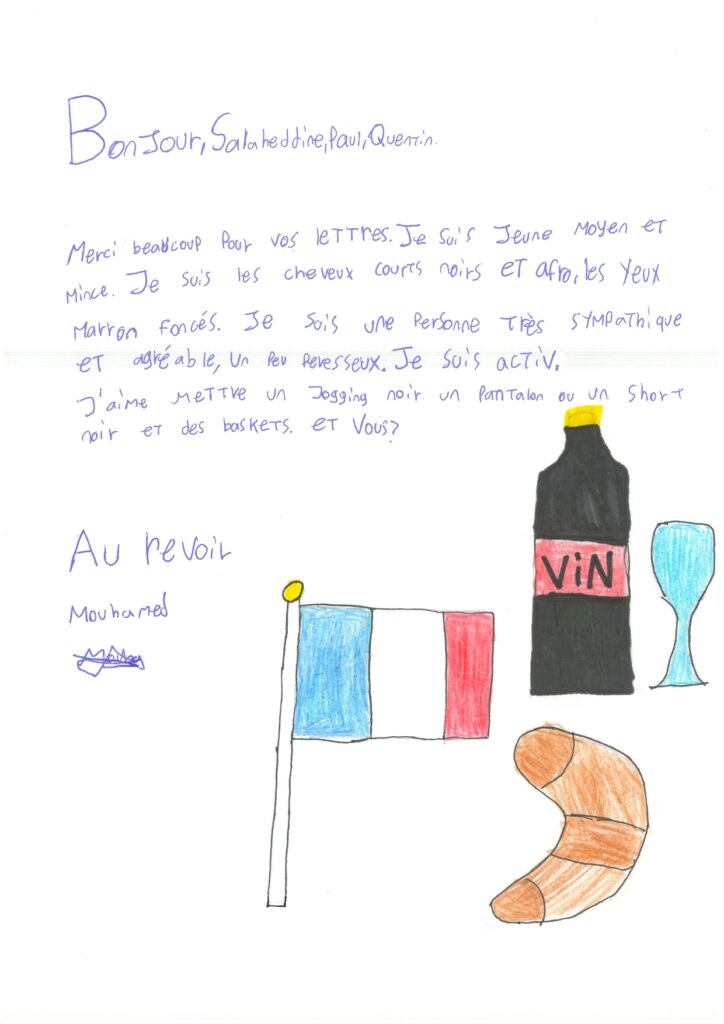 Bonjour, Salaheddine, Paul, Quentin.
Merci beaucoup pour vos lettres. Je suis jeune moyen et
mince. Je suis les cheveux courts noirs et afro, les yeux
marron foncés. Je suis une personne très sympathique
et agréable, un peu peresseux. Je suis activ.
J'aime mettre un jogging noir un pantalon ou un short
noir et des baskets. et vous?
Au revoir
Mouhamed
ViN